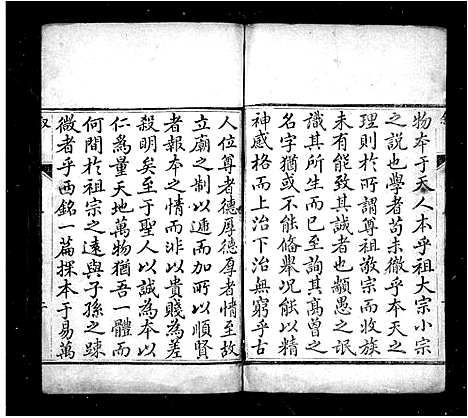 物本于天人本乎祖大宗小宗
之說也學者苟未徹乎本天之
理則於所謂尊祖敬宗而收族
未有能致其誠者也顓愚之氓
識其所生而已至詢其高曾之
名字猶或不能備舉況能以精
神感格而上治下治無窮乎古
人位尊者德厚德厚者情至故
立廟之制以遞而加所以順賢
者報本之情而非以貴賤為差
殺明矣至于聖人以誠為本以
仁為量天地萬物猶吾一體而
何間於祖宗之遠與子孫之踈
微者乎西銘一篇探本于易萬
叙
二